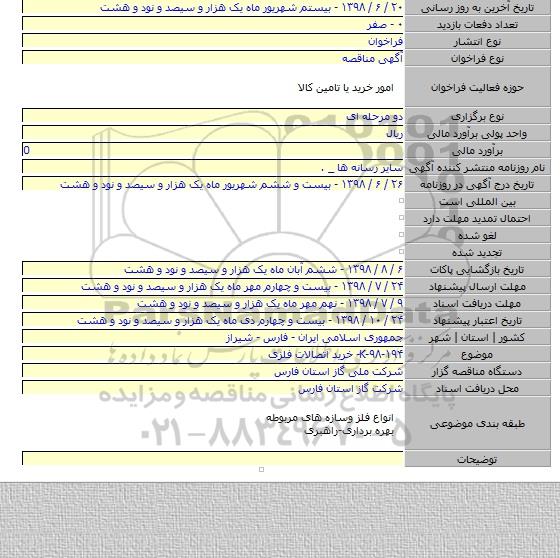 تاریخ آخرین به روز رسانی ۲۰ / ۶ / ۱۳۹۸ - بیستم شهریور ماه یک هزار و سیصد و نود و هشت
تعداد دفعات بازدید ۰ - صفر
نوع انتشار فراخوان
نوع فراخوان آگهی مناقصه
حوزه فعالیت فراخوان امور خرید یا تامین کالا
نوع برگزاری دو مرحله ای
واحد پولی برآورد مالی ریال
برآورد مالی 0
نام روزنامه منتشر کننده آگهی سایر رسانه ها _ .
تاریخ درج آگهی در روزنامه ۲۶ / ۶ / ۱۳۹۸ - بیست و ششم شهریور ماه یک هزار و سیصد و نود و هشت
بین المللی است
احتمال تمدید مهلت دارد
لغو شده
تجدید شده
تاریخ بازگشایی پاکات ۶ / ۸ / ۱۳۹۸ - ششم آبان ماه یک هزار و سیصد و نود و هشت
مهلت ارسال پیشنهاد ۲۴ / ۷ / ۱۳۹۸ - بیست و چهارم مهر ماه یک هزار و سیصد و نود و هشت
مهلت دریافت اسناد ۹ / ۷ / ۱۳۹۸ - نهم مهر ماه یک هزار و سیصد و نود و هشت
تاریخ اعتبار پیشنهاد ۲۴ / ۱۰ / ۱۳۹۸ - بیست و چهارم دی ماه یک هزار و سیصد و نود و هشت
کشور | استان | شهر جمهوری اسلامی ایران - فارس - شیراز
موضوع K-۹۸-۱۹۴- خرید اتصالات فلزی
دستگاه مناقصه گزار شرکت ملی گاز استان فارس
محل دریافت اسناد شرکت گاز استان فارس
پایگاه اطلاع رسانی مناقصه و مزایده
طبقه بندی موضوعی انواع فلز وسازه های مربوطه
بهره برداری-راهبری
۰۲۱-۸۸۳۴۹۶۷۰-۵
توضیحات